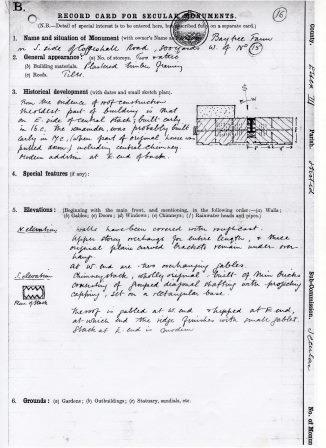 B.
RECORD CARD FOR SECULAR MONUMENTS.
16
(N.B.—Detail of special interest is to be entered here, but described fully on a separate card.)
1. Name and situation of Monument (with owner's Name Baytree Farm
in S. side of Coggeshall Road, 300 yards W. of No (15)
2. General appearance: (a) No. of storeys Two
(b) Building materials. Plastered timber framing
(c) Roofs. Tiles.
3. Historical development (with dates and small sketch plan).
From the evidence of roof construction
the oldest part of building is that
on E. side of central stack, built early
in 16.c. The remainder was probably built
early in 17.c., when part of original house was
pulled down, including central chimney.
Modern addition at E. end of
4. Special features (if any):
5. Elevations: (Beginning with the main front, and mentioning, in the following order:—(a) Walls;
(b) Gables; (c) Doors; (d) Windows; (e) Chimneys; (f) Rainwater heads and pipes.)
N. elevation
Walls have been covered with roughcast.
Upper storey overhangs for entire length, & three
original plain curved brackets remain under over-
hang.
At W. end are two overhanging gables.
S. elevation
Chimney stack, wholly original - built of thin bricks
consisting of grouped diagonal shafting with projecting
capping, set on a rectangular base.
Plan of Stack
The roof is gabled at W. end & hipped at E. end,
at which end the ridge finishes with small gablet.
Stack at E. end is modern
6. Grounds: (a) Gardens; (b) Outbuildings; (c) Statuary, sundials, etc.
County,
Essex III
Parish,
Sub-Commission,
Secular
No. of Monum